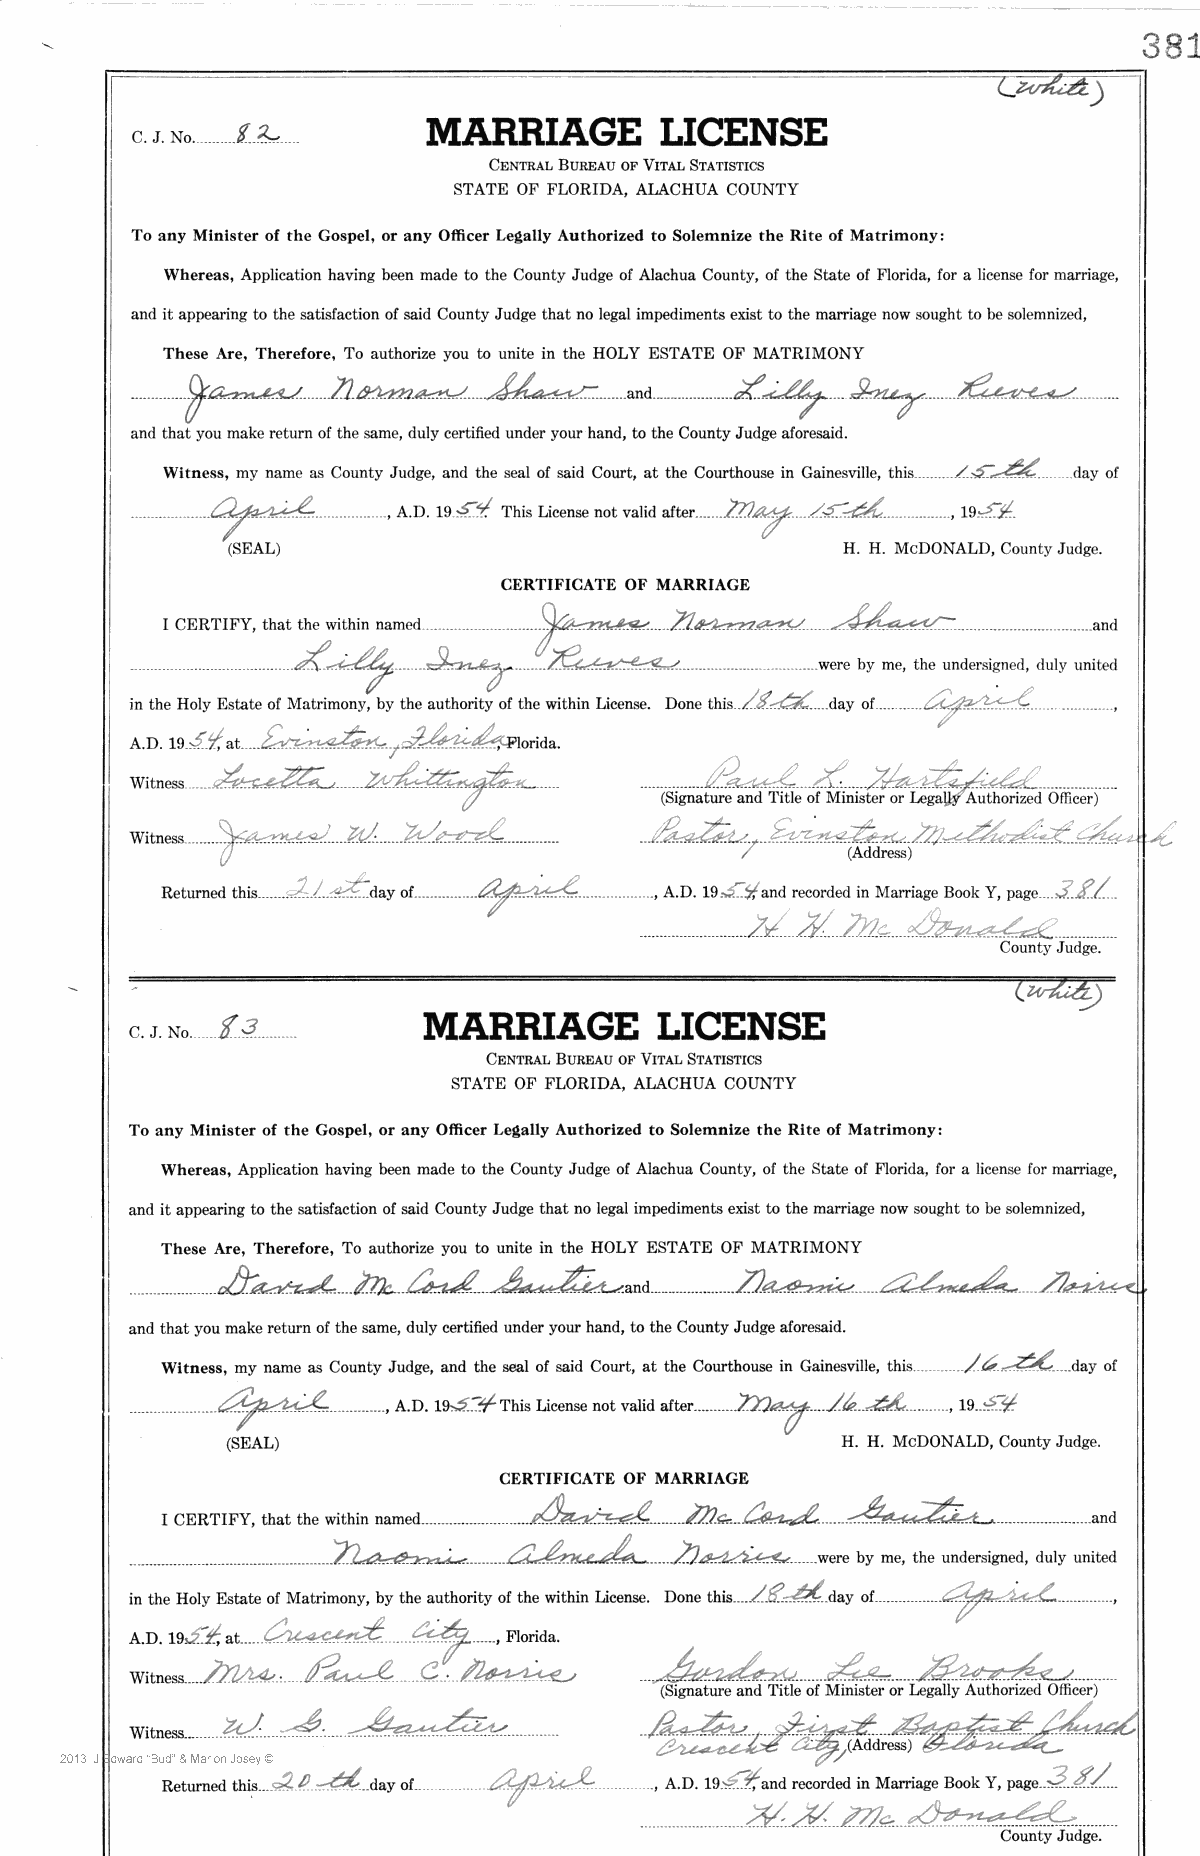 381
(White)
C. J. No. 82
MARRIAGE LICENSE
CENTRAL BUREAU OF VITAL STATISTICS
STATE OF FLORIDA, ALACHUA COUNTY
To any Minister of the Gospel, or any Officer Legally Authorized to Solemnize the Rite of Matrimony:
Whereas, Application having been made to the County Judge of Alachua County, of the State of Florida, for a license for marriage,
and it appearing to the satisfaction of said County Judge that no legal impediments exist to the marriage now sought to be solemnized,
These Are, Therefore, To authorize you to unite in the HOLY ESTATE OF MATRIMONY
James Norman Shaw and Lilly Inez Reeves
and that you make return of the same, duly certified under your hand, to the County Judge aforesaid.
Witness, my name as County Judge, and the seal of said Court, at the Courthouse in Gainesville, this 15th day of
April, A.D. 1954. This License not valid after May 15th, 1954
(SEAL) H. H. McDONALD, County Judge.
CERTIFICATE OF MARRIAGE
I CERTIFY, that the within named James Norman Shaw and
Lilly Inez Reeves were by me, the undersigned, duly united
in the Holy Estate of Matrimony, by the authority of the within License. Done this 18th day of April,
A.D. 1954, at Evinston, Florida, Florida.
Witness Locetta Whittington Paul L. Hartsfield
(Signature and Title of Minister or Legally Authorized Officer)
Witness James W. Wood Pastor, Evinston Methodist Church
(Address)
Returned this 21st day of April, A.D. 1954, and recorded in Marriage Book Y, page 381
H H McDonald
County Judge.
(White)
C. J. No. 83
MARRIAGE LICENSE
CENTRAL BUREAU OF VITAL STATISTICS
STATE OF FLORIDA, ALACHUA COUNTY
To any Minister of the Gospel, or any Officer Legally Authorized to Solemnize the Rite of Matrimony:
Whereas, Application having been made to the County Judge of Alachua County, of the State of Florida, for a license for marriage,
and it appearing to the satisfaction of said County Judge that no legal impediments exist to the marriage now sought to be solemnized,
These Are, Therefore, To authorize you to unite in the HOLY ESTATE OF MATRIMONY
David McCord Gautier and Naomi Almeda Norris
and that you make return of the same, duly certified under your hand, to the County Judge aforesaid.
Witness, my name as County Judge, and the seal of said Court, at the Courthouse in Gainesville, this 16th day of
April, A.D. 1954 This License not valid after May 16th, 1954
(SEAL) H. H. McDONALD, County Judge.
CERTIFICATE OF MARRIAGE
I CERTIFY, that the within named David McCord Gautier and
Naomi Almeda Norris were by me, the undersigned, duly united
in the Holy Estate of Matrimony, by the authority of the within License. Done this 18th day of April,
A.D. 1954, at Crescent City, Florida.
Witness Mrs. Paul C. Norris Gordon Lee Brooks
(Signature and Title of Minister or Legally Authorized Officer)
Witness W. G. Gautier Pastor, First Baptist Church
Crescent City, (Address) Florida
2013 J Edward "Bud" & Marion Josey ©
Returned this 20th day of April, A.D. 1954, and recorded in Marriage Book Y, page 381
H. H. McDonald
County Judge.